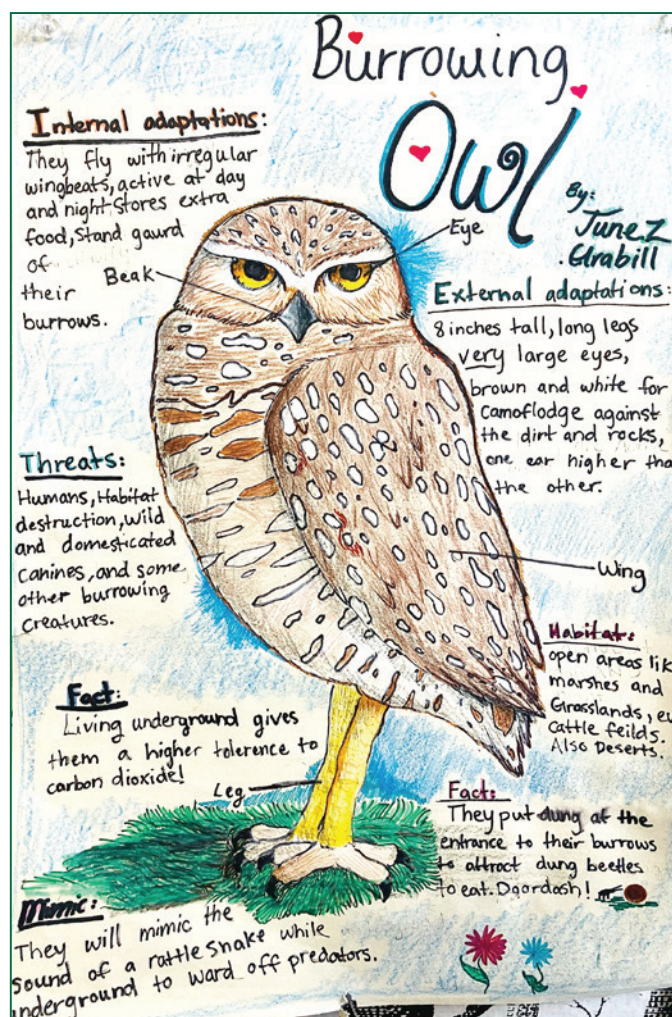 Burrowing
Owl
By:
June Z
Grabill
Internal adaptations:
They fly with irregular
wingbeats, active at day
and night. Stores extra
food, Stand gaurd
of
their
burrows.
Beak
Eye
External adaptations:
8 inches tall, long legs
very large eyes,
brown and white for
camoflodge against
the dirt and rocks,
one ear higher tha
the other.
Threats:
Humans, Habitat
destruction, wild
and domesticated
canines, and some
other burrowing
creatures.
Wing
Habitat:
open areas lik
marshes and
Grasslands,
Cattle feilds.
Also Deserts.
Fact:
Living underground gives
them a higher tolerence to
carbon dioxide!
Leg
Fact:
They put dung at the
entrance to their burrows
to attract dung beetles
to eat. Doordash!
Mimic:
They will mimic the
sound of a rattle snake while
underground to ward off predators.